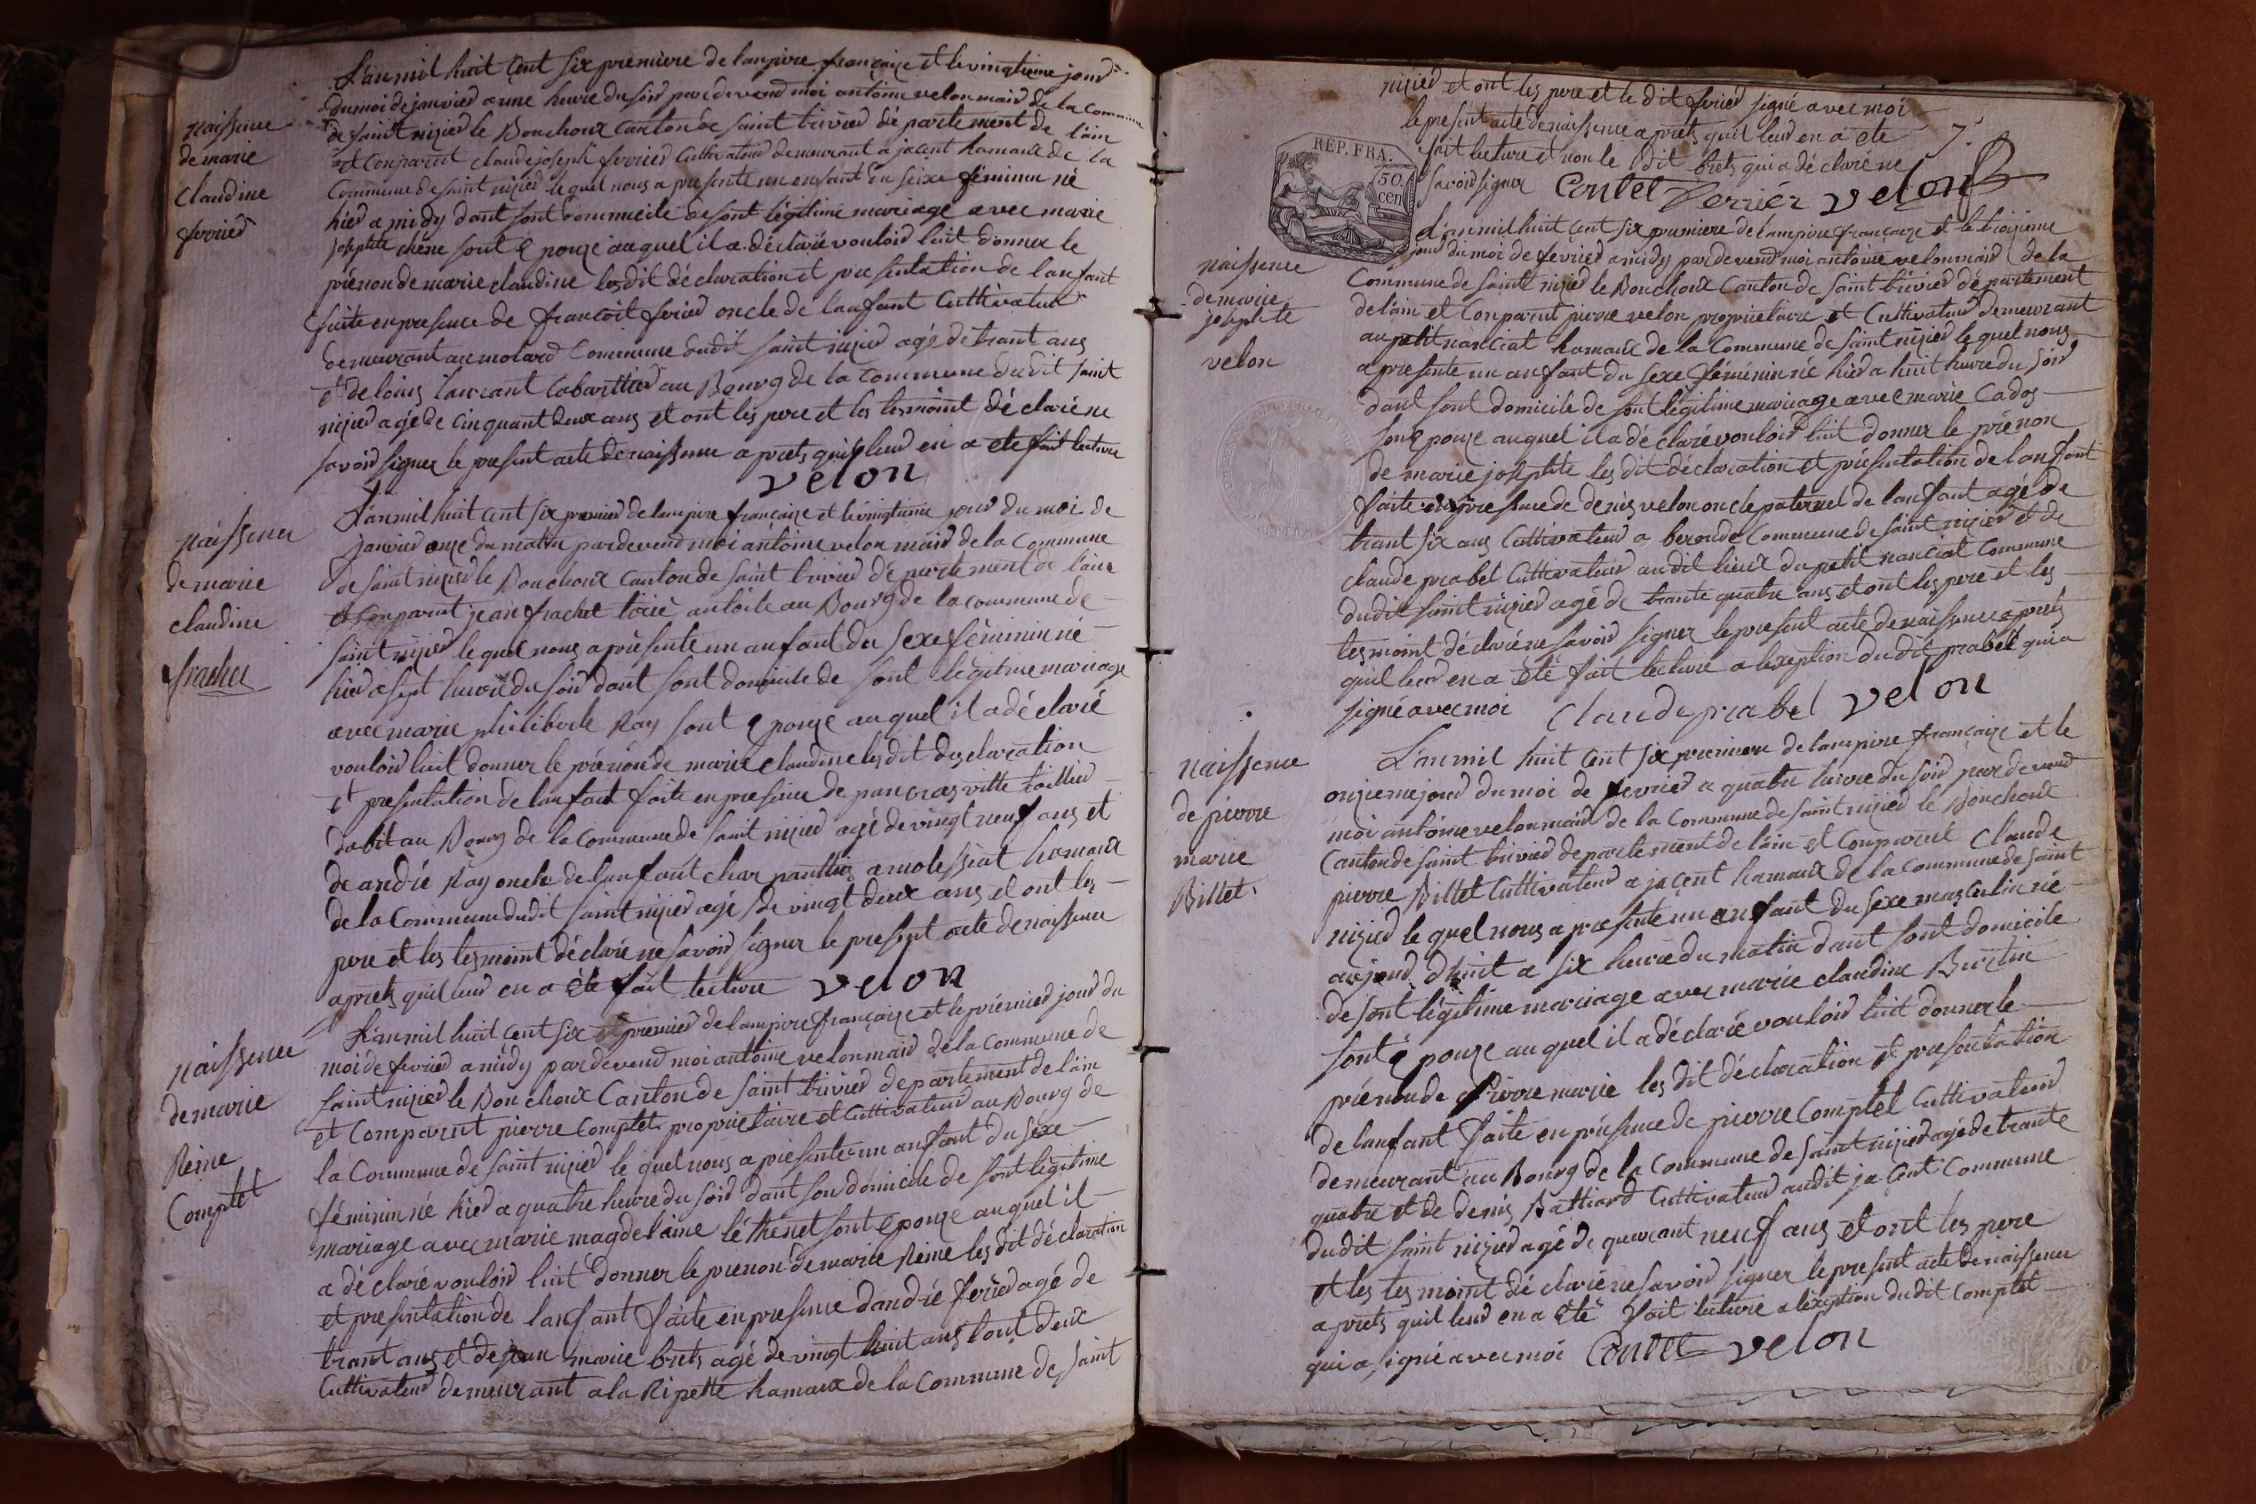 naissence
de marie
claudine
ferrier
L'an mil huit cent six premiere de lanpire françaize et le vingtieme jour
du moi de janvier a une heure du soir par devend moi antoine velon maire de la commune
de saint nizier le Bouchoux canton de saint trivier département de l'ain
est comparut claude joseph ferrier cultivateur demeurant a jacent hamaux de la
commune de saint nizier le quel nous a presente un enfant du seixe féminin né
hier a midy dant sont dommicile de sont légitime mariage avec marie
josephte chêne sont épouze au quel il a déclaré vouloir luit donner le
prénon de marie claudine les dit déclaration et presentation de lanfant
faite en presence de francoit ferier oncle de lanfant cultivateur
demeurant au molard commune dudit saint nizier agé de trant ans
et de louis laurant cabarttier au Bourg de la commune dudit saint
nizier agé de cinquant deux ans et ont les pere et les tesmoint déclaré ne
savoir signer le present acte de naissence a prets quil leur en a ete fait lecture
velon
naissence
de marie
claudine
frachet
L'an mil huit cent six premier de lanpire françaize et le vingtieme jour du moi de
janvier onze du matin par devend moi antoine velon maire de la commune
de saint nizier le Bouchoux canton de saint trivier département de l'ain
et comparut jean frachet au Bourg de la commune de
saint nizier le quel nous a présente un anfant du sexe féminin né
hier a sept heure du soir dant sont domicile de sont légitime mariage
avec marie philiberte Ray sont épouze au quel il a déclaré
vouloir luit donner le prénon de marie claudine les dit desclaration
et presentation de lanfant faite en presence de pancras vitte taillieur
dabit au Bourg de la commune de saint nizier agé de vingt neuf ans et
de andré Ray oncle de lanfant char panttier a molessiat hamaux
de la commune dudit saint nizier agé de vingt deux ans et ont les
pere et les tesmoint déclaré ne savoir signer le present acte de naissence
a prets quil leur en a été fait lecture velon
naissence
de marie
Reine
Comptet
L'an mil huit cent six et premier de lanpire françaize et le prémier jour du
moi de fevrier a midy par devend moi antoine velon maire de la commune de
saint nizier le Bouchoux canton de saint trivier departement de l'ain
et comparut pierre comptet proprietaire et cultivateur au Bourg de
la commune de saint nizier le quel nous a présente un anfant du séxe
féminin né hier a quatre heure du soir dant son domicile de sont légitime
mariage avec marie magdelaine léthenet sont épouze au quel il
a déclaré vouloir luit donner le prenon de marie Reine les dit déclaration
et presentation de lanfant faite en presence dandré ferier agé de
trant ans et de jean marie brets agé de vingt huit ans tout deux
cultivateur demeurant a la Ripette hamaux de la commune de saint
nizier et ont les pere et le dit ferier signé avec moi
le present acte de naissence a prets quil leur en a ete
fait lecture et non le dit brets qui a déclaré ne
savoir signer Contet Ferrier velon
7.
REP. FRA.
50
cen
naissence
de marie
josephte
velon
L'an mil huit cent six premiere de lanpire françaize et le troizieme
jour du moi de fevrier a midy par devend moi antoine velon maire de la
commune de saint nizier le Bouchoux canton de saint trivier département
de l'ain et comparut pierre velon proprietaire et cultivateur demeurant
au petit nanciat hamaux de la commune de saint nizier le quel nous
a presente un anfant du sexe féminin né hier a huit heure du soir
dant sont domicile de sont légitime mariage avec marie Cados
sont épouze au quel il a déclaré vouloir luit donner le prénon
de marie josephte les dit déclaration et présentation de lanfant
faite en presence de denis velon oncle paternel de lanfant agé de
trant six ans cultivateur a beronde commune de saint nizier et de
claude prabel cultivateur au dit lieux du petit nanciat commune
dudit saint nizier agé de trante quatre ans et ont les pere et les
tesmoint déclaré ne savoir signer le present acte de naissence a prets
quil leur en a été fait lecture a lexeption du dit prabel qui a
signé avec moi Claude prabel velon
naissence
de pierre
marie
Billet
L'an mil huit cent six premiere de lanpire françaize et le
onzieme jour du moi de fevrier a quatre heure du soir par devend
moi antoine velon maire de la commune de saint nizier le Bouchoux
canton de saint trivier departement de l'ain et comparut Claude
pierre Billet cultivateur a jacent hamaux de la commune de saint
nizier le quel nous a presente un enfant du sexe masculin né
aujourd'huit a six heure du matin dant sont domicile
de sont légitime mariage avec marie claudine Burtin
sont épouze au quel il a déclaré vouloir luit donner le
prénon de Pierre marie les dit déclaration et presentation
de lanfant faite en présence de pierre comptet cultivateur
demeurant au Bourg de la commune de saint nizier agé de trante
quatre et de denis Battiard cultivateur au dit jacent commune
dudit saint nizier agé de quarant neuf ans et ont les pere
et les tesmoint déclaré ne savoir signer le present acte de naissence
a prets quil leur en a été fait lecture a lexeption du dit comptet
qui a signé avec moi Contet velon